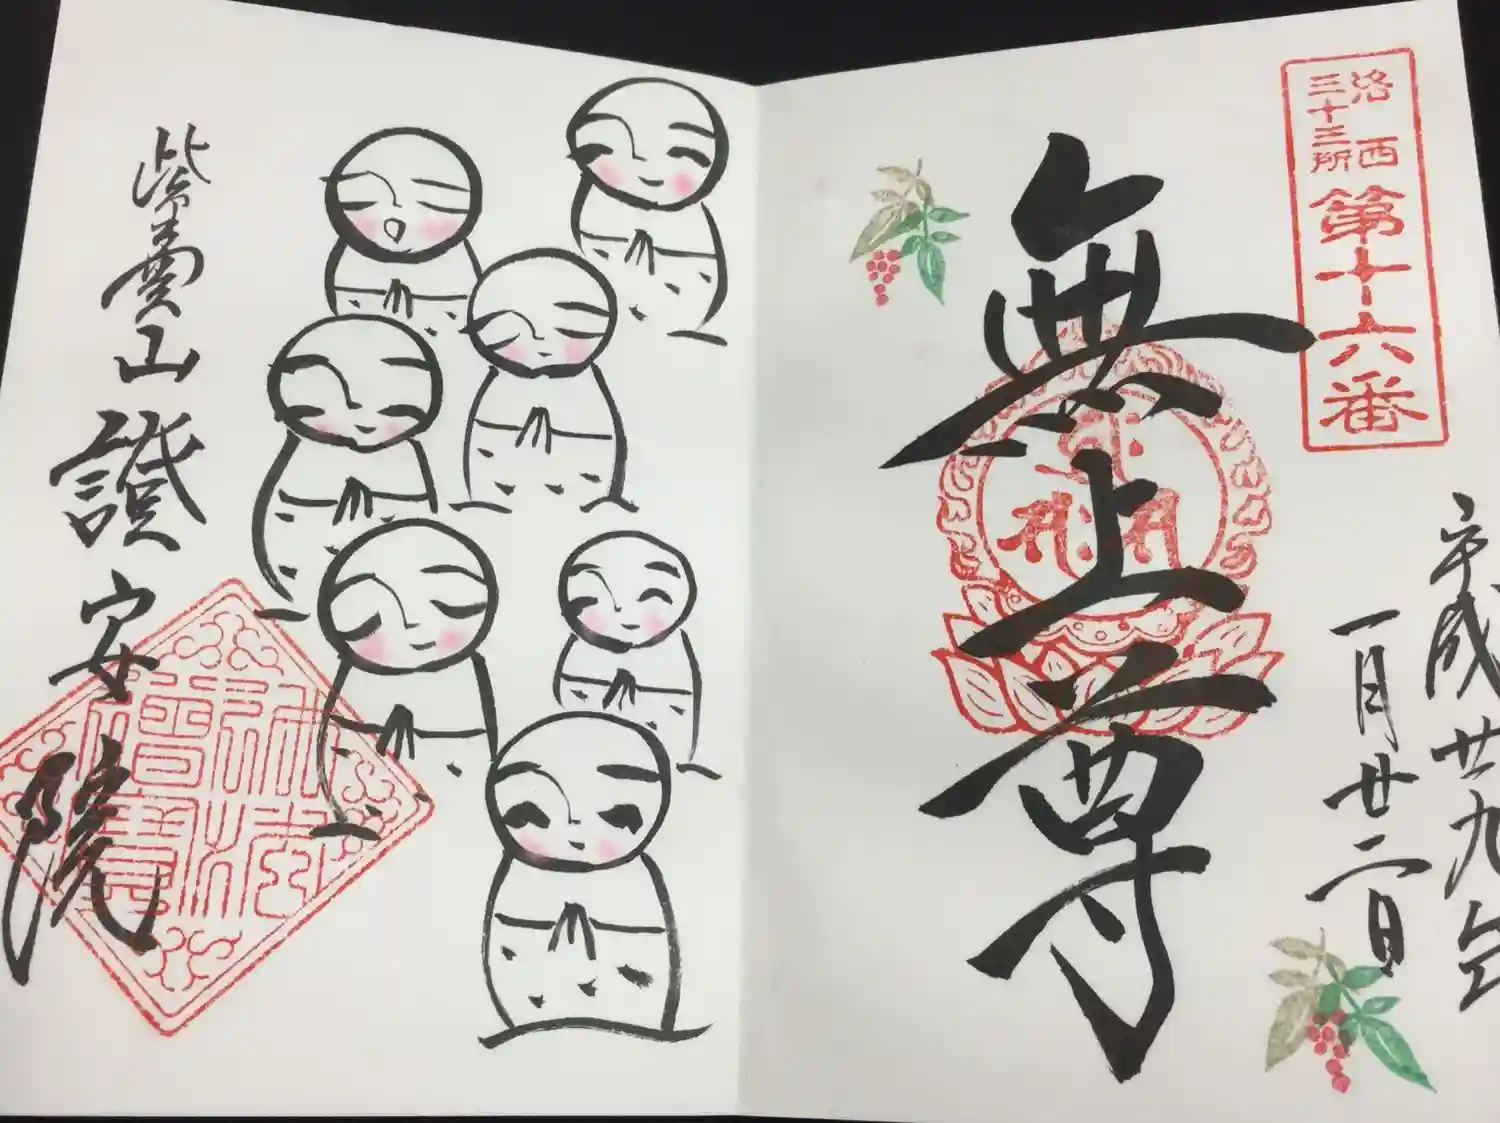 洛西
三十三所
第十六番
平成廿九年
一月廿二日
無上尊
紫雲山
證安院